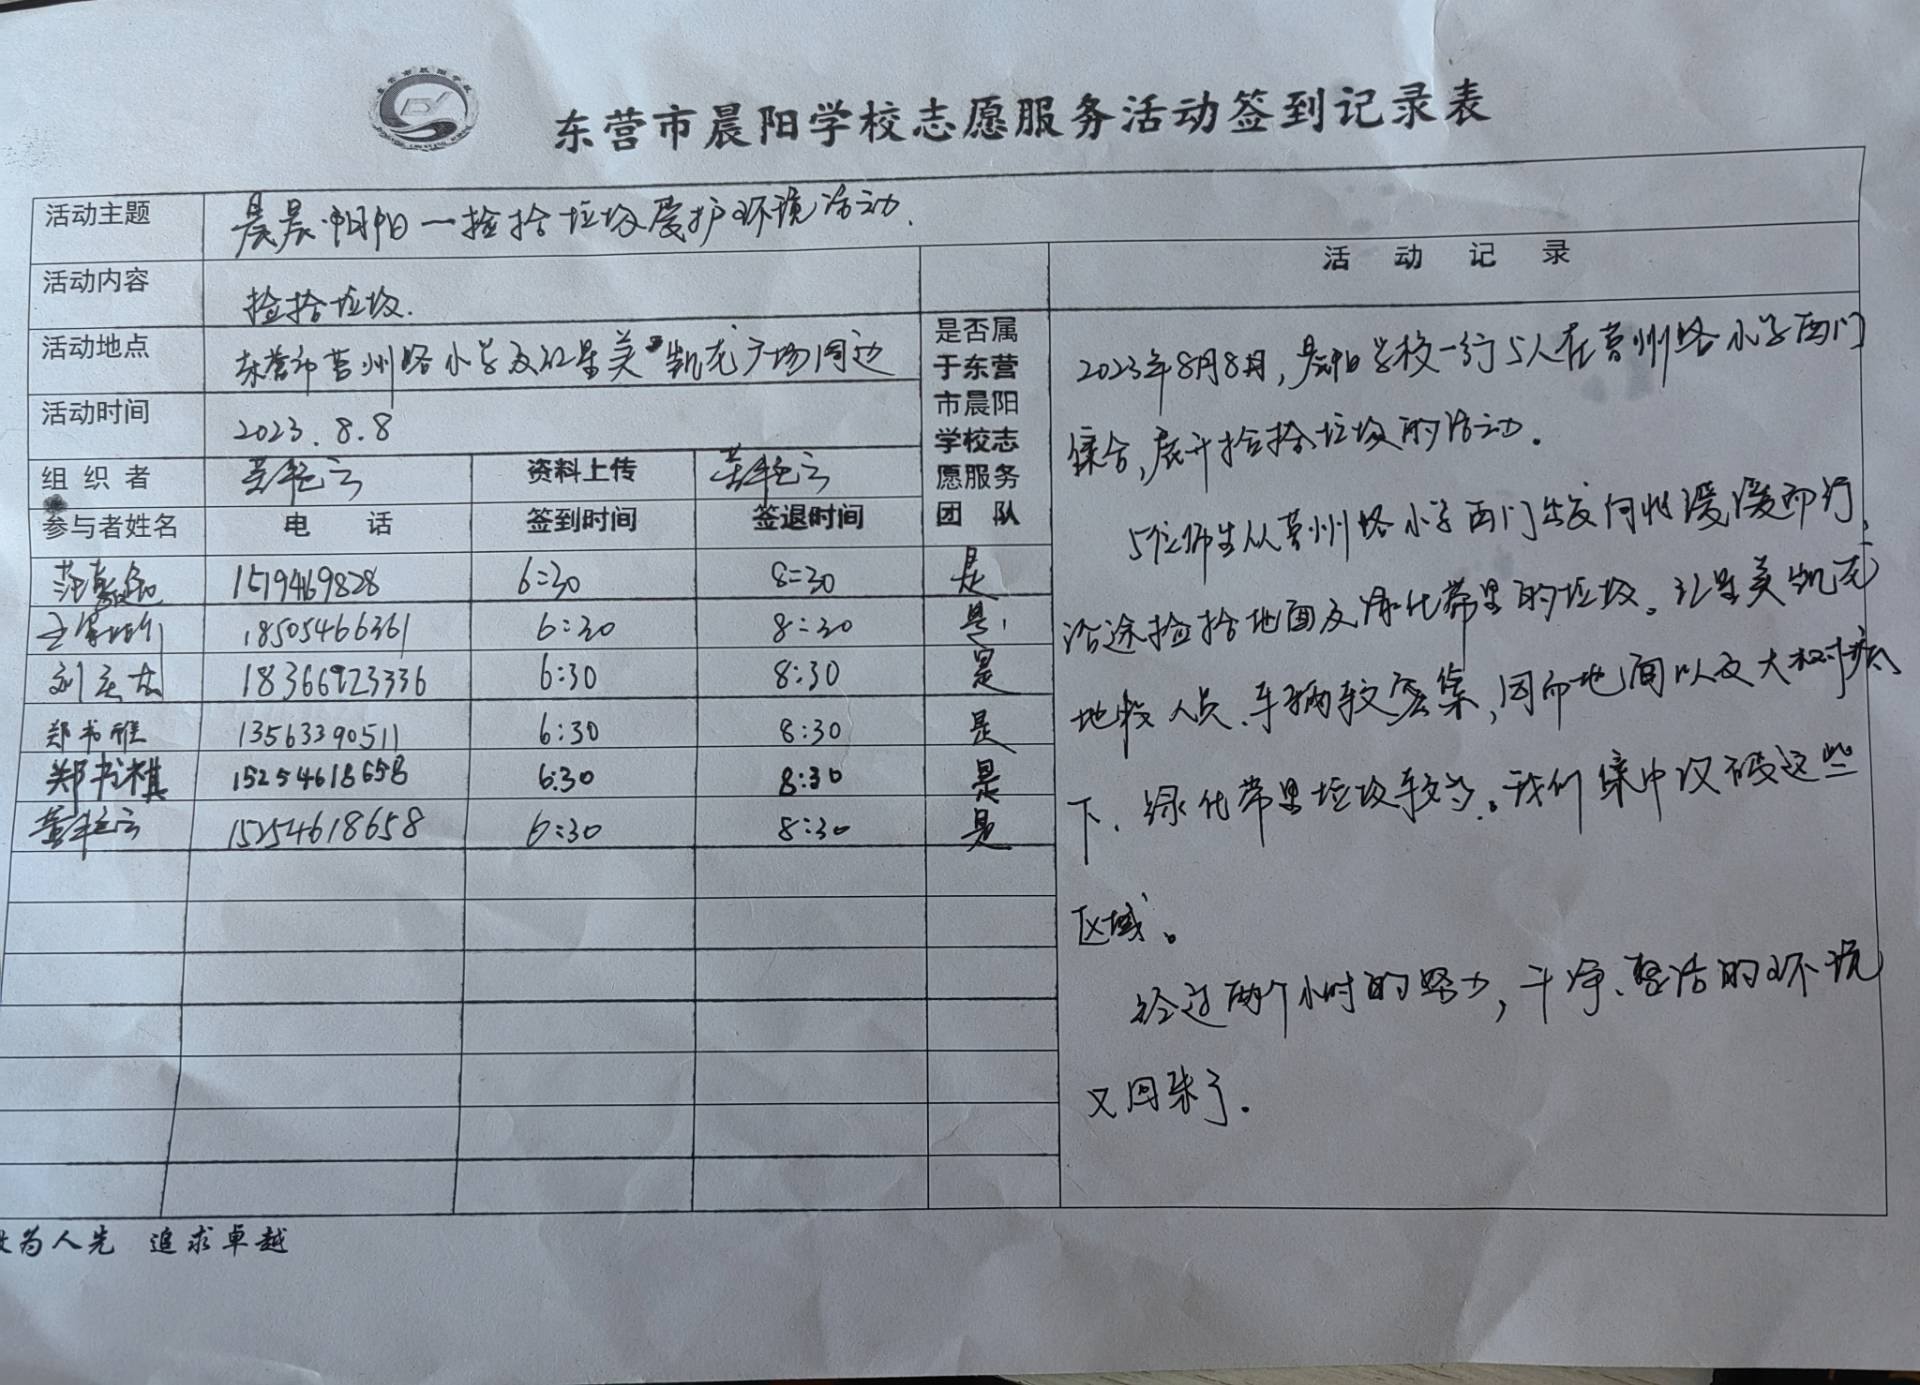 东营市晨阳学校志愿服务活动签到记录表
活动主题 晨晨阳阳一捡拾垃圾爱护环境活动.
活动内容 捡拾垃圾.
活动地点 东营市莒州路小学及红星美凯龙广场周边
活动时间 2023.8.8
组织者 资料上传
是否属于东营市晨阳学校志愿服务团队
参与者姓名 电话 签到时间 签退时间
1519469828 6:30 8:30 是
18505466361 6:30 8:30 是
18366923336 6:30 8:30 是
郑书雅 13563390511 6:30 8:30 是
郑书祺 15254618658 6:30 8:30 是
15254618658 6:30 8:30 是
活动记录
2023年8月8日,晨阳学校一行5人在莒州路小学西门
集合,展开捡拾垃圾的活动.
5位师生从莒州路小学西门出发向北缓缓而行,
沿途捡拾地面及绿化带里的垃圾。红星美凯龙
地段人员、车辆较密集,因而地面以及大树底
下、绿化带里垃圾较多。我们集中攻破这些
区域。
经过两个小时的努力,干净、整洁的环境
又回来了.
为人先 追求卓越